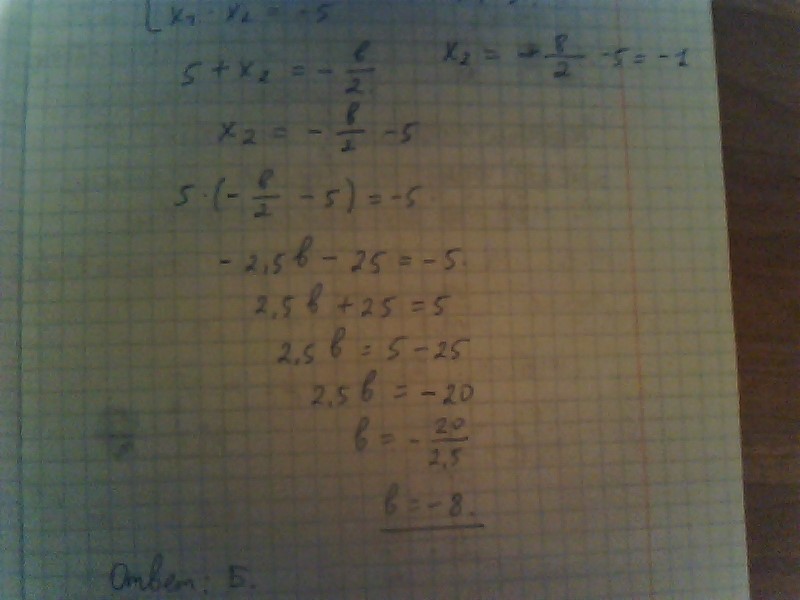 x₁ · x₂ = -5
5 + x₂ = - в/2
x₂ = - 8/2 - 5 = -1
x₂ = - в/2 - 5
5 · (- в/2 - 5) = -5.
- 2,5в - 25 = -5.
2,5в + 25 = 5
2,5в = 5 - 25
2,5в = -20
в = - 20/2,5
в = -8.
Ответ: Б.